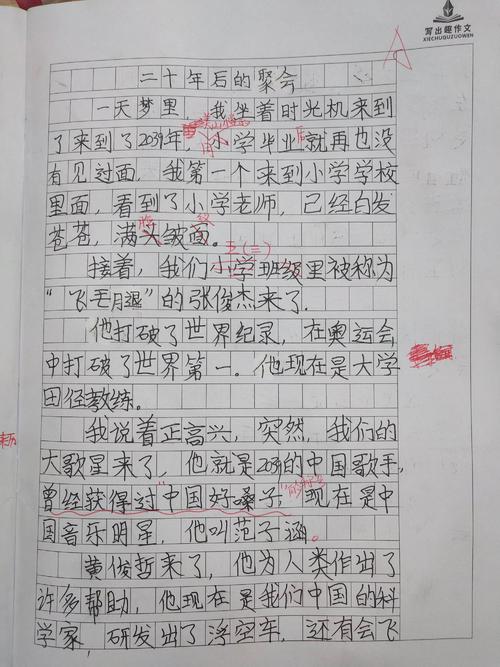 写出趣作文
XIECHUQUZUOWEN
A
二十年后的聚会
一天梦里，我坐着时光机来到
了来到了2039年，小学毕业后就再也没
有见过面，我第一个来到小学学校
里面，看到了小学老师，已经白发
苍苍，满头皱面。
脸 纹
五(三)
接着，我们小学班级里被称为
“飞毛月退”的张俊杰来了.
他打破了世界纪录，在奥运会
中打破了世界第一。他现在是大学
田径教练。
我说着正高兴，突然，我们的
大歌星来了，他就是2039的中国歌手，
曾经获得过“中国好嗓子”现在是中
国音乐明星，他叫范子涵。
黄俊哲来了，他为人类作出了
许多帮助，他现在是我们中国的科
学家，研发出了浮空车，还有会飞